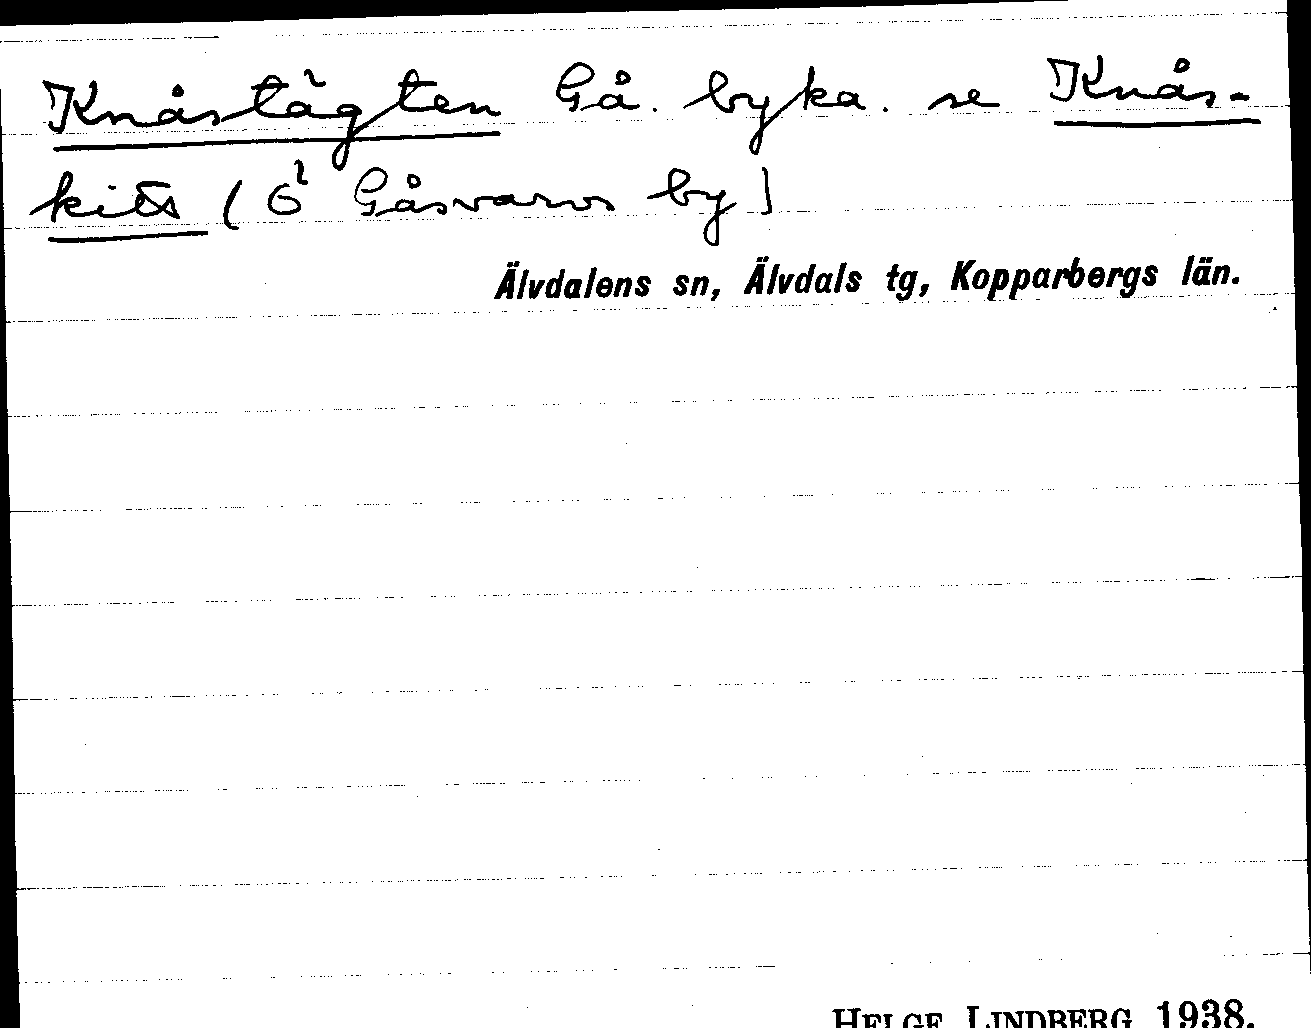 Knåstägten Gå. byka. se Knås-
kits (Ö Gåsvarvs by)
Älvdalens sn, Älvdals tg, Kopparbergs län.
HELGE LINDBERG 1938.